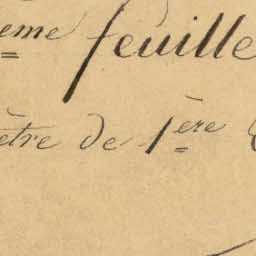 eme feuille
ètre de 1ère